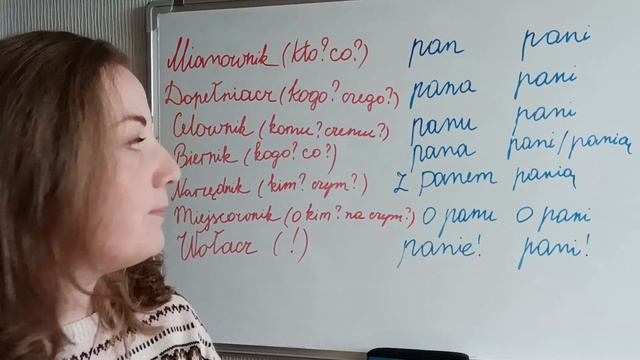 Mianownik (kto? co?) pan pani
Dopełniacz (kogo? czego?) pana pani
Celownik (komu? czemu?) panu pani
Biernik (kogo? co?) pana pani/panią
Narzędnik (kim? czym?) z panem panią
Miejscownik (o kim? na czym?) o panu o pani
Wołacz (!) panie! pani!